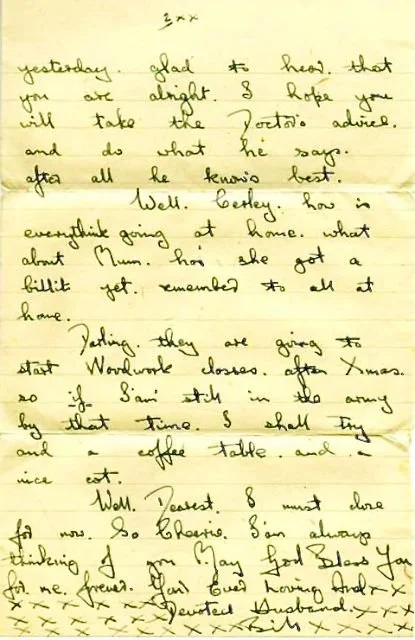 3xx
yesterday. glad to hear. that
you are alright. I hope you
will take the Doctor's advice.
and do what he says.
after all he know's best.
Well. Cerley. how is
everythink going at home. what
about Mum. has she got a
billit yet. remember to all at
home.
Darling. they are going to
start Woodwork classes. after Xmas.
so if I'am still in the army
by that time. I shall try
and a coffee table. and. a
nice cot.
Well. Dearest. I must close
for now. So Cheerie. I'am always
thinking of you May God Bless You
for me. forever. Your Ever loving And xxx
xxxxxxxx Devoted Husband. xxx
xxxxxxxxxx Bill xxxx